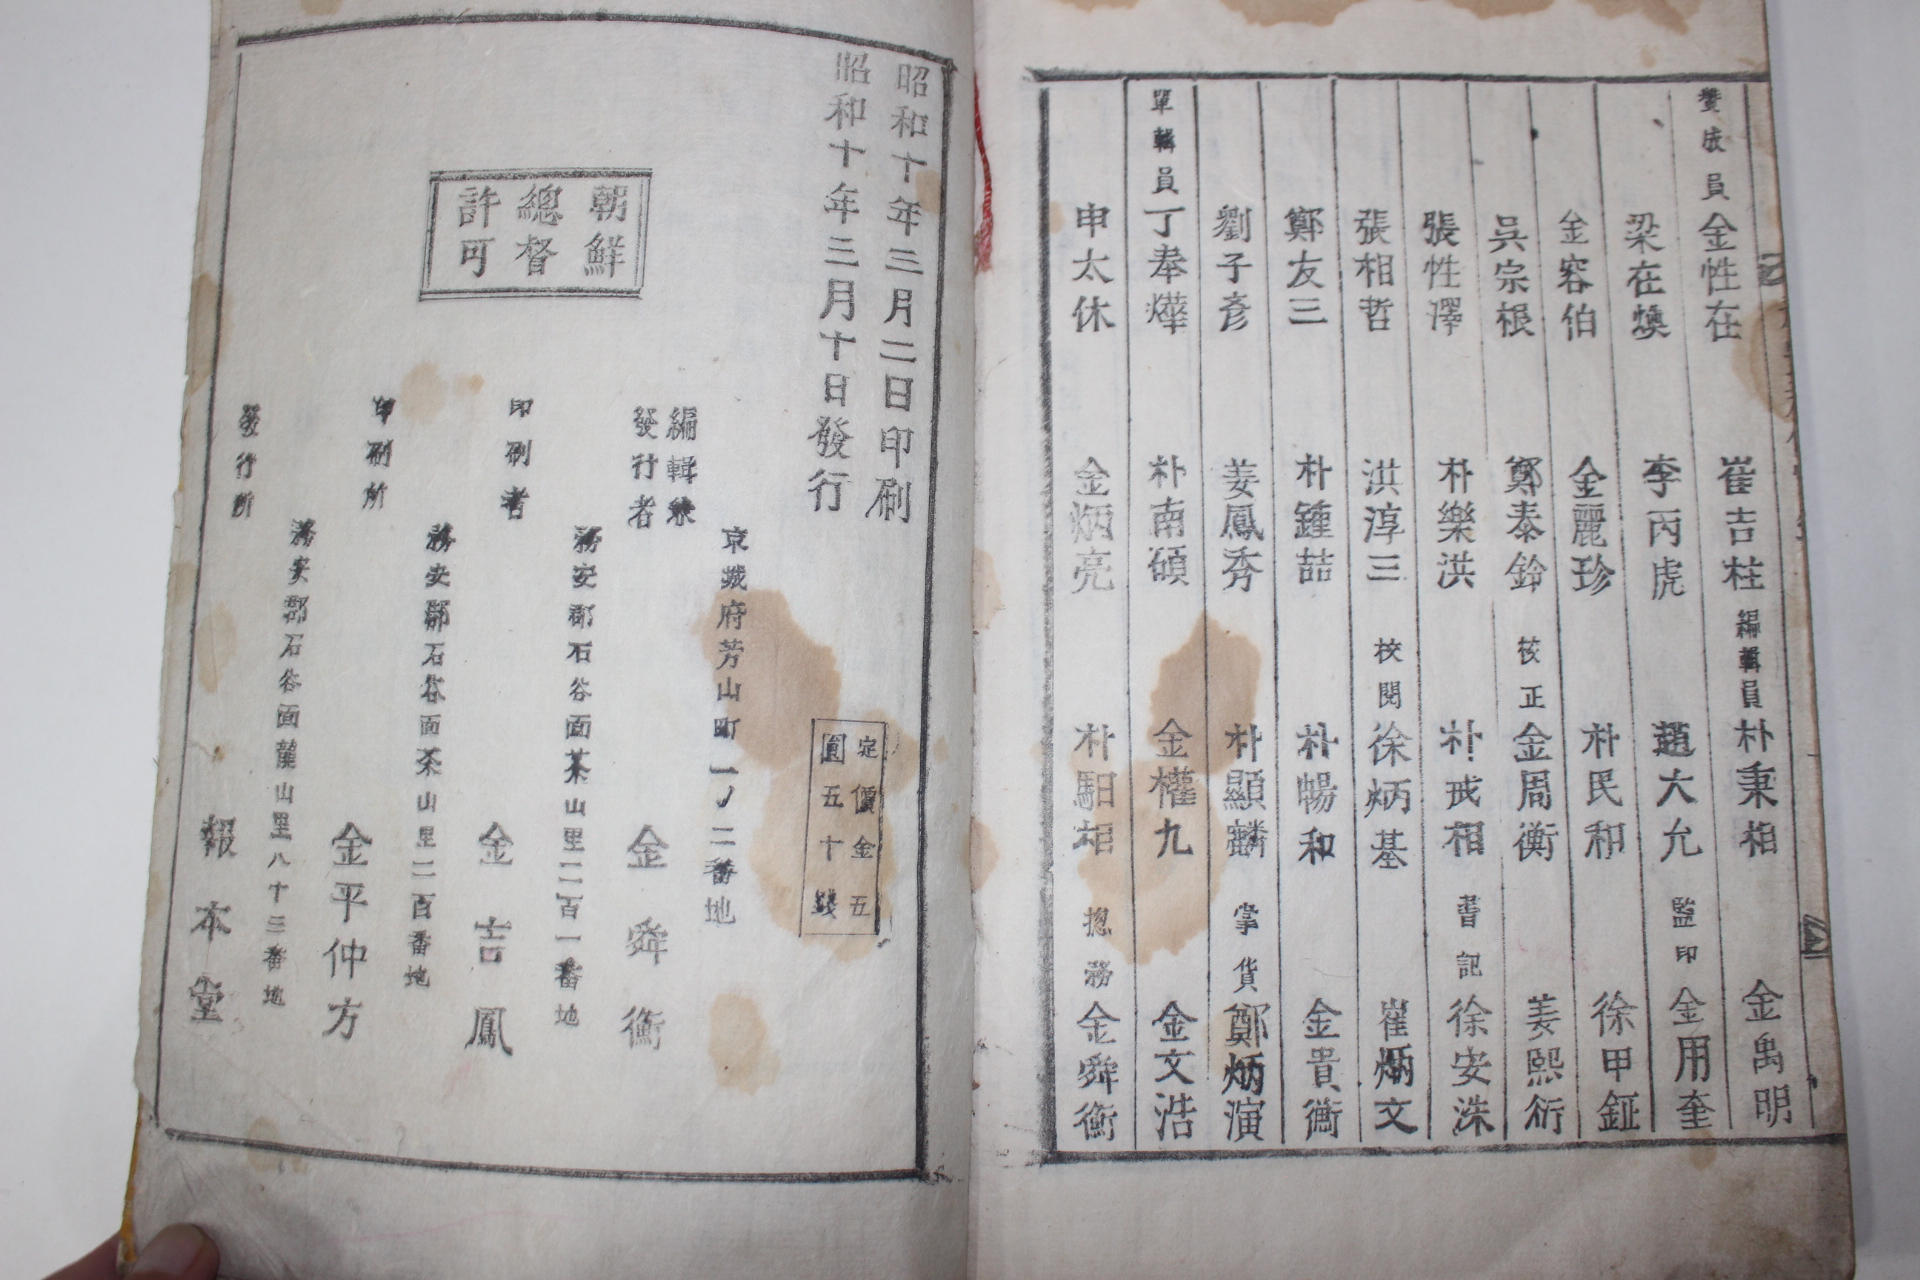 贊成員 金性在 崔吉柱 編輯員 朴秉相 金禹明
梁在煥 李丙虎 趙大允 監印 金用奎
金容伯 金麗珍 朴民和 徐甲鉦
吳宗根 鄭泰鈴 校正 金周衡 姜熙衍
張性澤 朴樂洪 朴戒相 書記 徐安洙
張相哲 洪淳三 校閱 徐炳基 崔炳文
鄭友三 朴鍾喆 朴暢和 金貴衡
劉子彦 姜鳳秀 朴顯麟 掌貨 鄭炳演
單輯員 丁奉燁 朴南碩 金權九 金文浩
申太休 金炳亮 朴馹相 捴務 金舜衡
昭和十年三月二日印刷
昭和十年三月十日發行
朝鮮
總督
許可
定價金五
圓五十錢
京城府芳山町一ノ二番地
編輯兼
發行者 金舜衡
務安郡石谷面茶山里二百一番地
印刷者 金吉鳳
務安郡石谷面茶山里二百番地
印刷所 金平仲方
務安郡石谷面龍山里八十三番地
發行所 報本堂